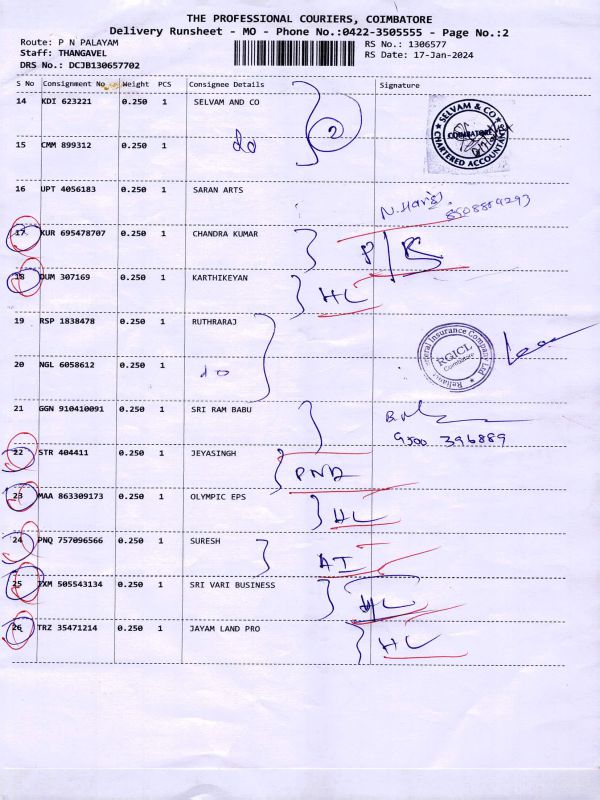 THE PROFESSIONAL COURIERS, COIMBATORE
Delivery Runsheet - MO - Phone No.:0422-3505555 - Page No.:2
Route: P N PALAYAM RS No.: 1306577
Staff: THANGAVEL RS Date: 17-Jan-2024
DRS No.: DCJB130657702
S No Consignment No Weight PCS Consignee Details Signature
14 KDI 623221 0.250 1 SELVAM AND CO
2
SELVAM & CO COIMBATORE CHARTERED ACCOUNTANTS
15 CMM 899312 0.250 1 do
16 UPT 4056183 0.250 1 SARAN ARTS
17 KUR 695478707 0.250 1 CHANDRA KUMAR
18 DUM 307169 0.250 1 KARTHIKEYAN HL
19 RSP 1838478 0.250 1 RUTHRARAJ
RGICL Coimbatore
20 NGL 6058612 0.250 1 do
21 GGN 910410091 0.250 1 SRI RAM BABU
9500 396889
22 STR 404411 0.250 1 JEYASINGH PNA
23 MAA 863309173 0.250 1 OLYMPIC EPS HL
24 PNQ 757096566 0.250 1 SURESH AI
25 IXM 505543134 0.250 1 SRI VARI BUSINESS HL
26 TRZ 35471214 0.250 1 JAYAM LAND PRO HL